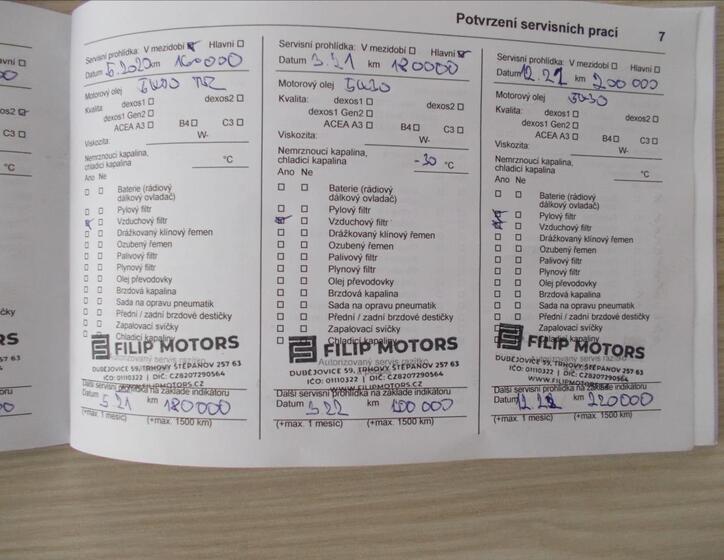 Potvrzení servisních prací 7
Servisní prohlídka: V mezidobí Hlavní
Datum 5.2020 km 160000
Motorový olej 5W30
Kvalita: dexos1 dexos2
dexos1 Gen2
ACEA A3 B4 C3
Viskozita: W-
Nemrznoucí kapalina,
chladicí kapalina °C
Ano Ne
Baterie (rádiový
dálkový ovladač)
Pylový filtr
Vzduchový filtr
Drážkovaný klínový řemen
Ozubený řemen
Palivový filtr
Plynový filtr
Olej převodovky
Brzdová kapalina
Sada na opravu pneumatik
Přední / zadní brzdové destičky
Zapalovací svíčky
Chladicí kapaliny
FILIP MOTORS
Autorizovaný servis razítko
DUBĚJOVICE 59, TRHOVÝ ŠTĚPÁNOV 257 63
IČO: 01110322 | DIČ: CZ8207290564
WWW.FILIPMOTORS.CZ
Další servisní prohlídka na základě indikátoru
Datum 5.21 km 180000
(+max. 1 měsíc) (+max. 1500 km)
Servisní prohlídka: V mezidobí Hlavní
Datum 3.21 km 180000
Motorový olej 5W30
Kvalita: dexos1 dexos2
dexos1 Gen2
ACEA A3 B4 C3
Viskozita: W-
Nemrznoucí kapalina,
chladicí kapalina -30 °C
Ano Ne
Baterie (rádiový
dálkový ovladač)
Pylový filtr
Vzduchový filtr
Drážkovaný klínový řemen
Ozubený řemen
Palivový filtr
Plynový filtr
Olej převodovky
Brzdová kapalina
Sada na opravu pneumatik
Přední / zadní brzdové destičky
Zapalovací svíčky
Chladicí kapaliny
FILIP MOTORS
Autorizovaný servis razítko
DUBĚJOVICE 59, TRHOVÝ ŠTĚPÁNOV 257 63
IČO: 01110322 | DIČ: CZ8207290564
WWW.FILIPMOTORS.CZ
Další servisní prohlídka na základě indikátoru
Datum 3.22 km 200 000
(+max. 1 měsíc) (+max. 1500 km)
Servisní prohlídka: V mezidobí Hlavní
Datum 12.21 km 200 000
Motorový olej 5W30
Kvalita: dexos1 dexos2
dexos1 Gen2
ACEA A3 B4 C3
Viskozita: W-
Nemrznoucí kapalina,
chladicí kapalina °C
Ano Ne
Baterie (rádiový
dálkový ovladač)
Pylový filtr
Vzduchový filtr
Drážkovaný klínový řemen
Ozubený řemen
Palivový filtr
Plynový filtr
Olej převodovky
Brzdová kapalina
Sada na opravu pneumatik
Přední / zadní brzdové destičky
Zapalovací svíčky
Chladicí kapaliny
FILIP MOTORS
Autorizovaný servis razítko
DUBĚJOVICE 59, TRHOVÝ ŠTĚPÁNOV 257 63
IČO: 01110322 | DIČ: CZ8207290564
WWW.FILIPMOTORS.CZ
Další servisní prohlídka na základě indikátoru
Datum 12.22 km 220000
(+max. 1 měsíc) (+max. 1500 km)